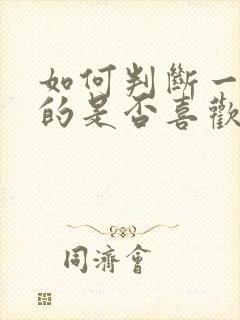 如何判斷一
的是否喜歡
同濟會